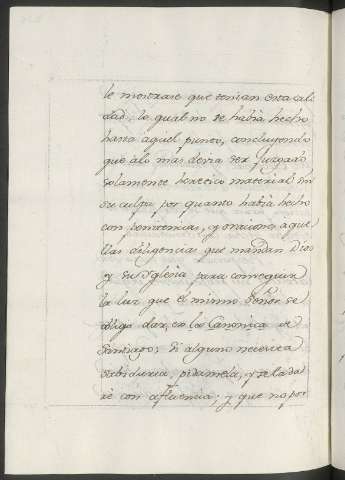 le mostrase que tenian esta cali
dad; lo qual no se habia hecho
hasta aquel punto, concluyendo
que alo mas devia ser juzgado
solamente heretico material sin
su culpa por quanto habia hecho
con penitencias, y oraciones aque
llas diligencias que mandan Dios
y su Yglesia para conseguir
la luz que el mismo Señor se
obligo dar, en la Canonica de
Santiago; si alguno necesita
sabiduria, pidamela, y se la da
re con afluencia; y que no por